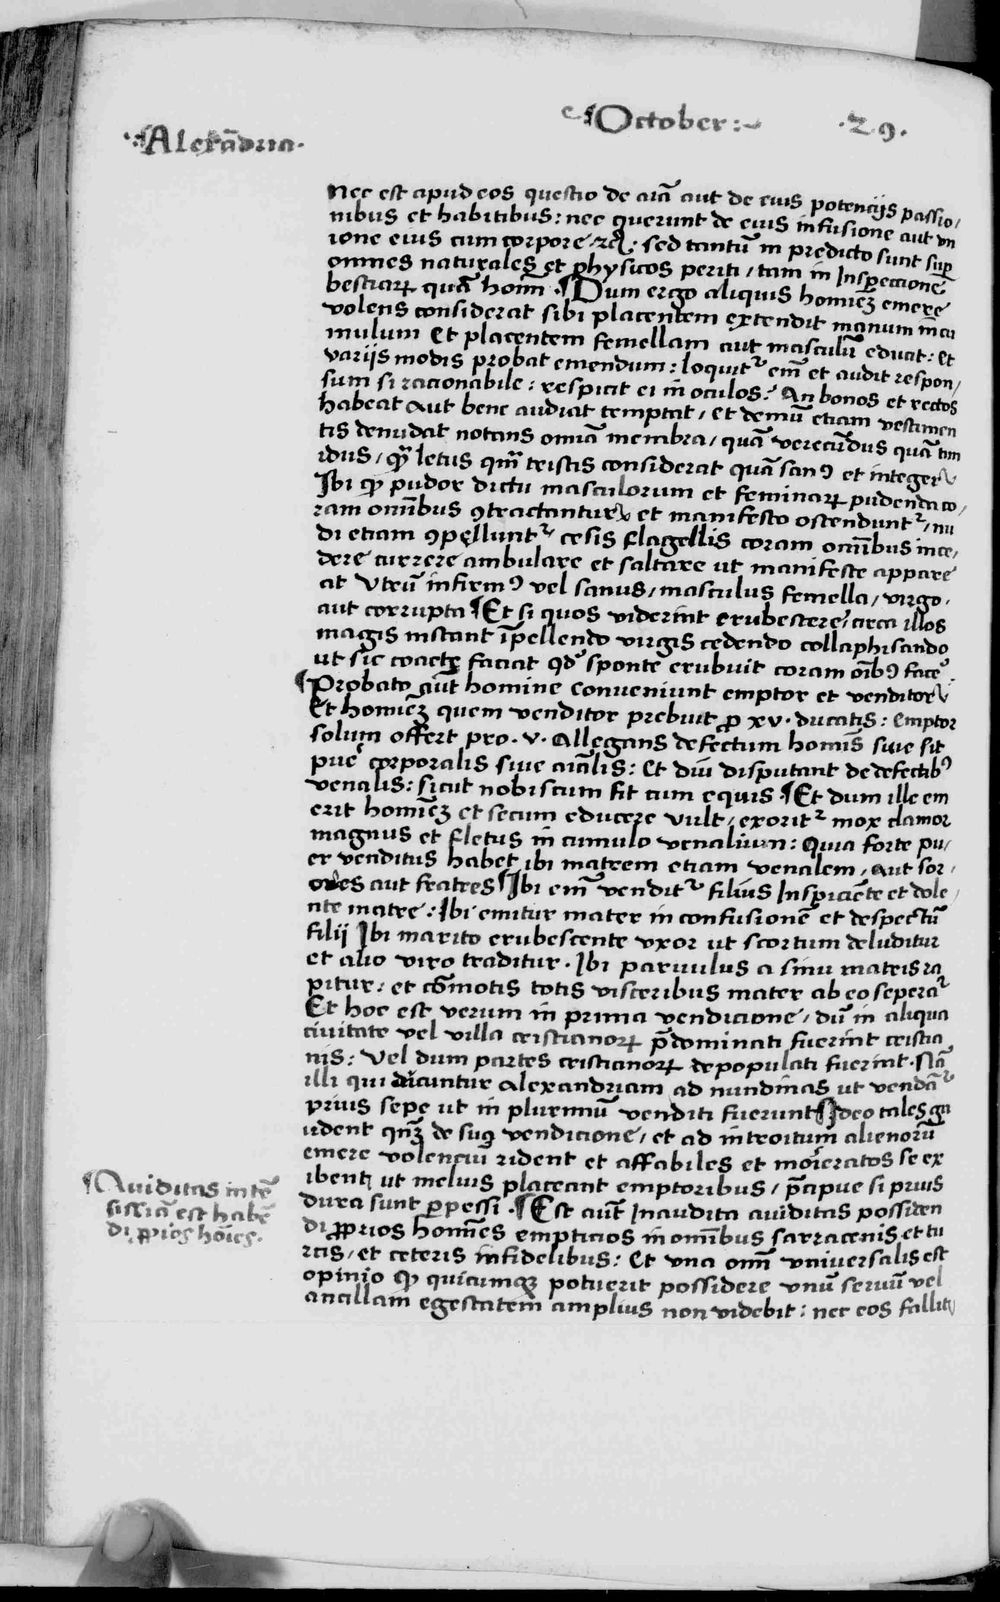 ¶October: ·29·
·¶Alexãdria·
nec est apud eos questio de aĩa aut de eius potencijs passio/
nibus et habitibus: nec querunt de eius infusione aut vn
ione eius cum corpore ⁊cͣ: sed tantũ in predicto sunt suꝑ
omnes naturales et physicos periti / tam in Inspeccione
bestiaꝝ quã homĩ ·¶Dum ergo aliquis homieȝ emere
volens considerat sibi placentem extendit manum in cu
mulum Et placentem femellam aut masculũ educit: Et
varijs modis probat emendum: loquitᷣ em̃ et audit respon/
sum si racionabile: respicit ei in oculos: An bonos et rectos
habeat aut bene audiat temptat / et demũ etiam vestimen
tis denudat notans omĩa membra / quã verecũdus quã tim
idus / qȝ letus qm̃ tristis considerat quã sanꝰ et integer
Ibi ꝙ pudor dictu masculorum et feminaꝝ pudenda co/
ram omĩbus ꝯtractantur et manifesto ostenduntᷣ / nu
di etiam ꝯpelluntᷣ cesis flagellis coram omĩbus ince/
dere currere ambulare et saltare ut manifeste appare
at Vtrũ infirmꝰ vel sanus / masculus femella / virgo ·
aut corrupta ¶Et si quos viderint erubescere / circa illos
magis instant ĩpellendo virgis cedendo collaphisando
ut sic coacte faciat qdͦ sponte erubuit coram oĩbꝰ faceͦ
¶Probato aũt homine conveniunt emptor et venditor
Et homieȝ quem venditor prebuit ꝓ xv· ducatis: emptor
solum offert pro ·v· Allegans defectum homĩs siue sit
puę corporalis siue aĩalis: Et diu disputant de defectibꝰ
venalis: sicut nobiscum fit cum equis ·¶Et dum ille em
erit homieȝ et secum educere vult / exoritᷣ mox clamor
magnus et fletus in cumulo venalium: Quia forte pu/
er venditus habet ibi matrem etiam venalem / aut sor/
ores aut fratres ¶Ibi em̃ venditᷣ filius Inspiciẽte et dole/
nte matre: Ibi emitur mater in confusionẽ et despectũ
filij Ibi marito erubescente vxor ut scortum deluditur
et alio viro traditur · Ibi paruulus a sinu matris ra
pitur: et cõmotis totis visceribus mater ab eo seperaᷣ
Et hoc est verum in prima vendicione / dũ in aliqua
ciuitate vel villa cristianoꝝ p̃dominati fuerint cristia
nis: Vel dum partes cristianoꝝ depopulati fuerint · Nã
illi qui ducuntur Alexandriam ad nundinas ut vendãᷣ
prius sepe ut in plurimũ venditi fuerunt ¶Ideo tales ga
udent qñȝ de suạ vendicione / et ad introitum alienorũ
emere volenciũ rident et affabiles et moieratos se ex
ibent ut melius placeant emptoribus / p̃cipue si prius
dura sunt ꝑpessi ·¶Est aũt Inaudita auiditas possiden
di ꝓprios homĩes empticios in omĩbus sarracenis et tu
rcis / et ceteris infidelibus: Et vna omĩ vniuersalis est
opinio ꝙ quicumqȝ potuerit possidere vnũ seruũ vel
ancillam egestatem amplius non videbit: nec eos fallit
¶Auiditas in tẽ
sissiã est habẽ
di ꝓprios hoĩes ·